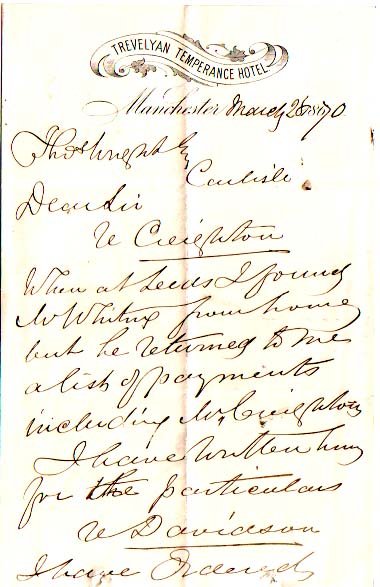 TREVELYAN TEMPERANCE HOTEL
Manchester March 1870
Thos Wright Esq
Carlisle
Dear Sir
Re Creighton
When at Leeds I found
Mr Whiting from home
but he returned to me
a list of payments
including Mr Creighton
I have written him
for the particulars
Re Davidson
I have Ordered